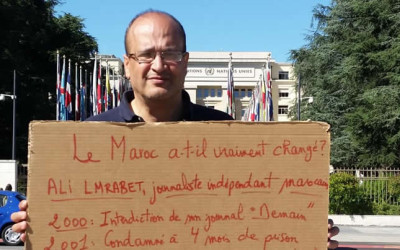 NATIONS UNIES
Le Maroc a-t-il vraiment changé?
ALI LMRABET, journaliste indépendant marocain
2000: Interdiction de mon journal "Demain"
2001: Condamné à 4 mois de prison